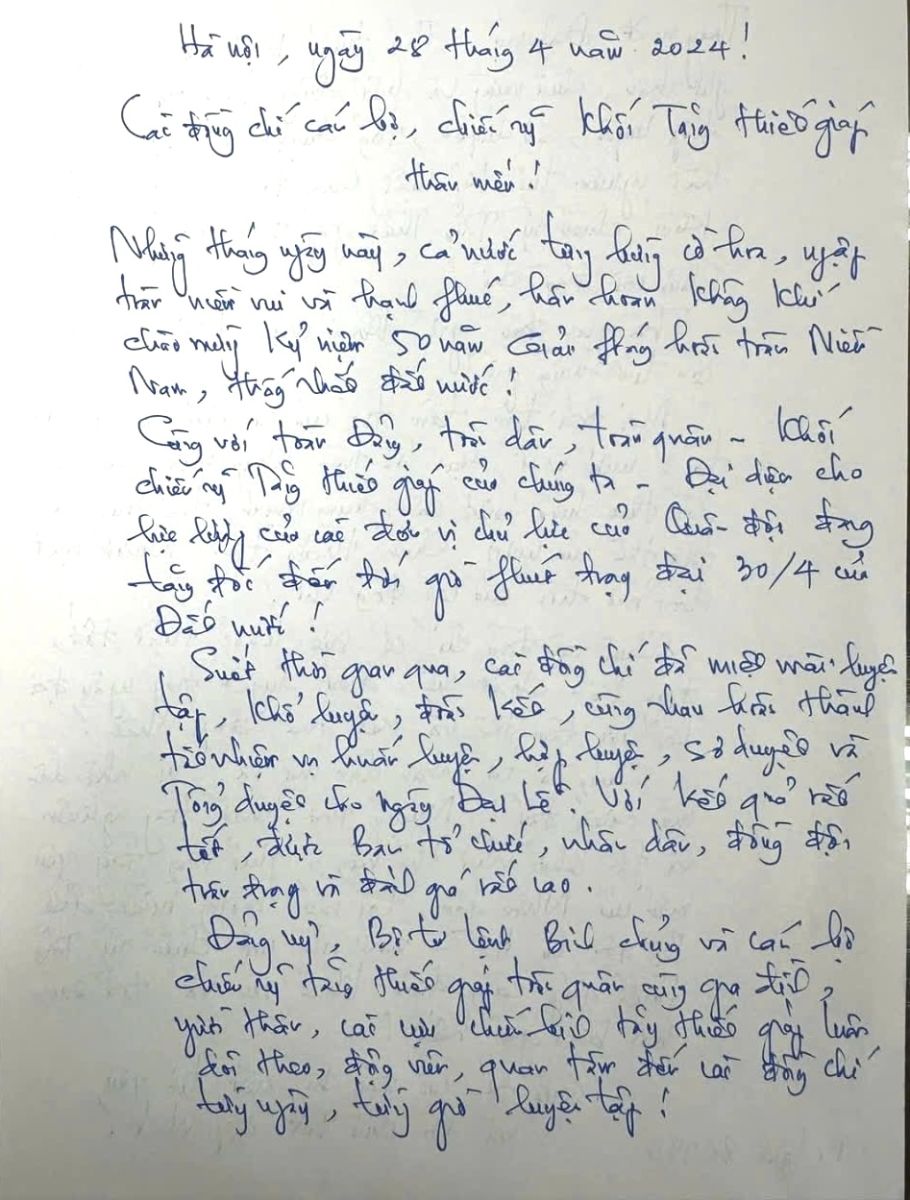 Hà nội, ngày 28 tháng 4 năm 2024!
Các đồng chí cán bộ, chiến sỹ khối Tăng thiết giáp
thân mến!
Những tháng ngày này, cả nước tưng bừng cờ hoa, ngập
tràn niềm vui và hạnh phúc, hân hoan không khí
chào mừng Kỷ niệm 50 năm Giải phóng hoàn toàn Miền
Nam, thống nhất đất nước!
Cùng với toàn Đảng, toàn dân, toàn quân - Khối
chiến sỹ Tăng thiết giáp của chúng ta - Đại diện cho
lực lượng của các đơn vị chủ lực của Quân đội đang
tăng tốc đến với giờ phút trọng đại 30/4 của
Đất nước!
Suốt thời gian qua, các đồng chí đã miệt mài luyện
tập, khổ luyện, đoàn kết, cùng nhau hoàn thành
tốt nhiệm vụ huấn luyện, hợp luyện, sơ duyệt và
Tổng duyệt cho ngày Đại Lễ. Với kết quả rất
tốt, được Ban tổ chức, nhân dân, đồng đội
trân trọng và đánh giá rất cao.
Đảng uỷ, Bộ tư lệnh Binh chủng và cán bộ
chiến sỹ tăng thiết giáp toàn quân cùng gia đình,
người thân, các cựu chiến binh tăng thiết giáp luôn
dõi theo, động viên, quan tâm đến các đồng chí
từng ngày, từng giờ luyện tập!